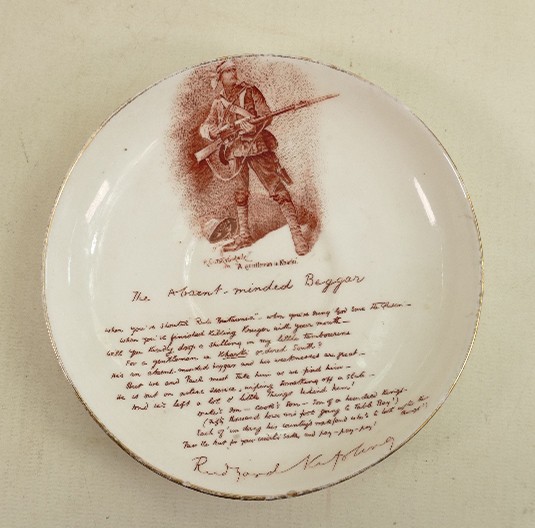 "A gentleman in Kharki."
The Absent-minded Beggar
When you've shouted "Rule Britannia" - when you've sung "God save the Queen" -
When you've finished killing Kruger with your mouth -
Will you kindly drop a shilling in my little tambourine
For a gentleman in Kharki ordered South?
He's an absent-minded beggar and his weaknesses are great -
But we and Paul must take him as we find him -
He is out on active service, wiping something off a slate -
And he's left a lot o' little things behind him!
Duke's son - cook's son - son of a hundred kings -
(Fifty thousand horse and foot going to Table Bay!)
Each of 'em doing his country's work (and who's to look after their things?)
Pass the hat for your credit's sake and pay - pay - pay!
Rudyard Kipling